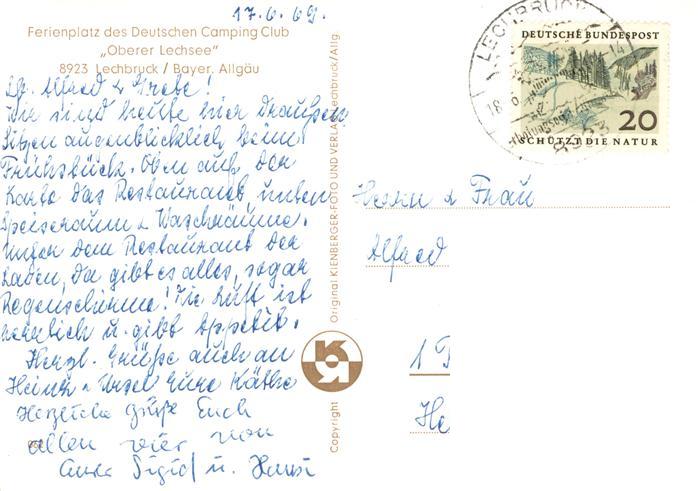 17.6.69.
Ferienplatz des Deutschen Camping Club
„Oberer Lechsee"
8923 Lechbruck / Bayer. Allgäu
Lb. Alfred u. Grete!
Wir sind heute hier draußen
sitzen augenblicklich beim
Frühstück. Oben auf der
Karte das Restaurant, unten
Speiseraum u Waschräume.
Unter dem Restaurant der
Laden, da gibt es alles, sogar
Regenschirme! Die Luft ist
herrlich u. gibt Appetit.
Herzl. Grüße auch an
Heinz u Ursel Eure Käthe
Herzliche Grüße Euch
allen vier von
Eurer Sigrid u. Hansi
Original KIENBERGER-FOTO UND VERLAG Lechbruck/Allg.
Copyright
LECHBRUCK
18.
-14
8923
DEUTSCHE BUNDESPOST
20
SCHÜTZT DIE NATUR
Herrn u Frau
Alfred
1
He